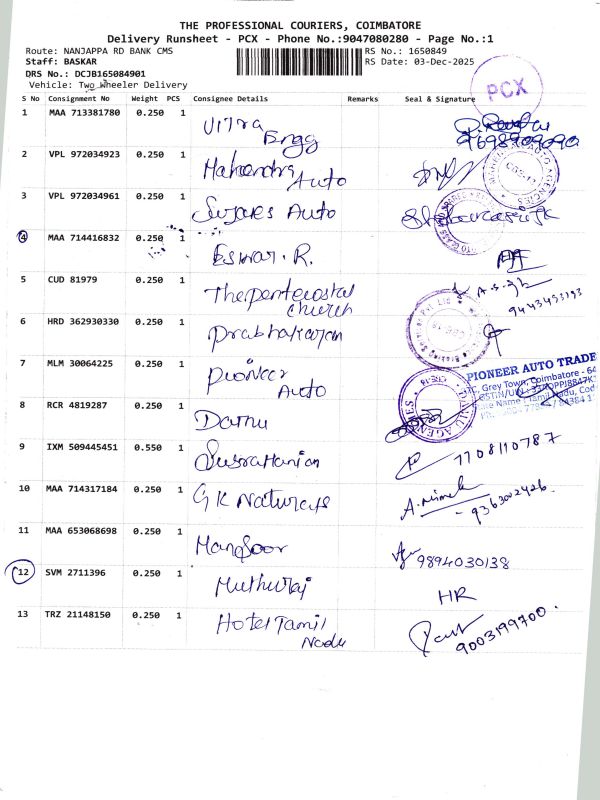 THE PROFESSIONAL COURIERS, COIMBATORE
Delivery Runsheet - PCX - Phone No.:9047080280 - Page No.:1
Route: NANJAPPA RD BANK CMS RS No.: 1650849
Staff: BASKAR RS Date: 03-Dec-2025
DRS No.: DCJB165084901
Vehicle: Two Wheeler Delivery
PCX
S No Consignment No Weight PCS Consignee Details Remarks Seal & Signature
1 MAA 713381780 0.250 1 Vitra
Engg
9698909090
2 VPL 972034923 0.250 1 Mahendra
Auto
3 VPL 972034961 0.250 1 Sujares Auto
4 MAA 714416832 0.250 1 Eswar. R.
5 CUD 81979 0.250 1 The pentecostal
church
9443493193
6 HRD 362930330 0.250 1 Prabhakaran
7 MLM 30064225 0.250 1 Pioneer
Auto
PIONEER AUTO TRADE
Grey Town, Coimbatore - 64
8 RCR 4819287 0.250 1 Damu
9 IXM 509445451 0.550 1 Subramanian 7708110787
10 MAA 714317184 0.250 1 GK Naturals
- 9363002426.
11 MAA 653068698 0.250 1 Mansoor 9894030138
12 SVM 2711396 0.250 1 Muthuraj HR
13 TRZ 21148150 0.250 1 Hotel Tamil
Nadu
9003199700.